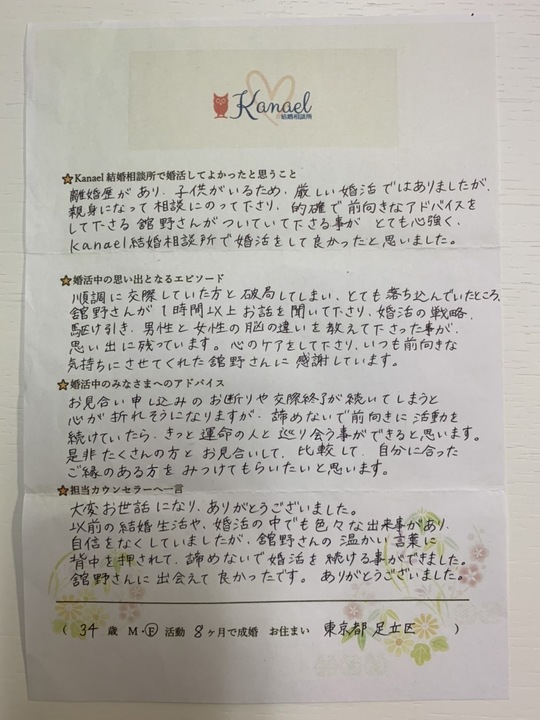 Kanael
結婚相談所
Kanael 結婚相談所で婚活してよかったと思うこと
離婚歴があり、子供がいるため、厳しい婚活ではありましたが、
親身になって相談にのって下さり、的確で前向きなアドバイスを
して下さる舘野さんがついていて下さる事がとても心強く、
kanael結婚相談所で婚活をして良かったと思いました。
婚活中の思い出となるエピソード
順調に交際していた方と破局してしまい、とても落ち込んでいたところ、
舘野さんが1時間以上お話を聞いて下さり、婚活の戦略、
駆け引き、男性と女性の脳の違いを教えて下さった事が、
思い出に残っています。心のケアをして下さり、いつも前向きな
気持ちにさせてくれた舘野さんに感謝しています。
婚活中のみなさまへのアドバイス
お見合い申し込みのお断りや交際終了が続いてしまうと
心が折れそうになりますが、諦めないで前向きに活動を
続けていたら、きっと運命の人と巡り会う事ができると思います。
是非たくさんの方とお見合いして、比較して、自分に合った
ご縁のある方をみつけてもらいたいと思います。
担当カウンセラーへ一言
大変お世話になり、ありがとうございました。
以前の結婚生活や、婚活の中でも色々な出来事があり、
自信をなくしていましたが、舘野さんの温かい言葉に
背中を押されて、諦めないで婚活を続ける事ができました。
舘野さんに出会えて良かったです。ありがとうございました。
( 34 歳 M・F 活動 8 ヶ月で成婚 お住まい 東京都足立区 )